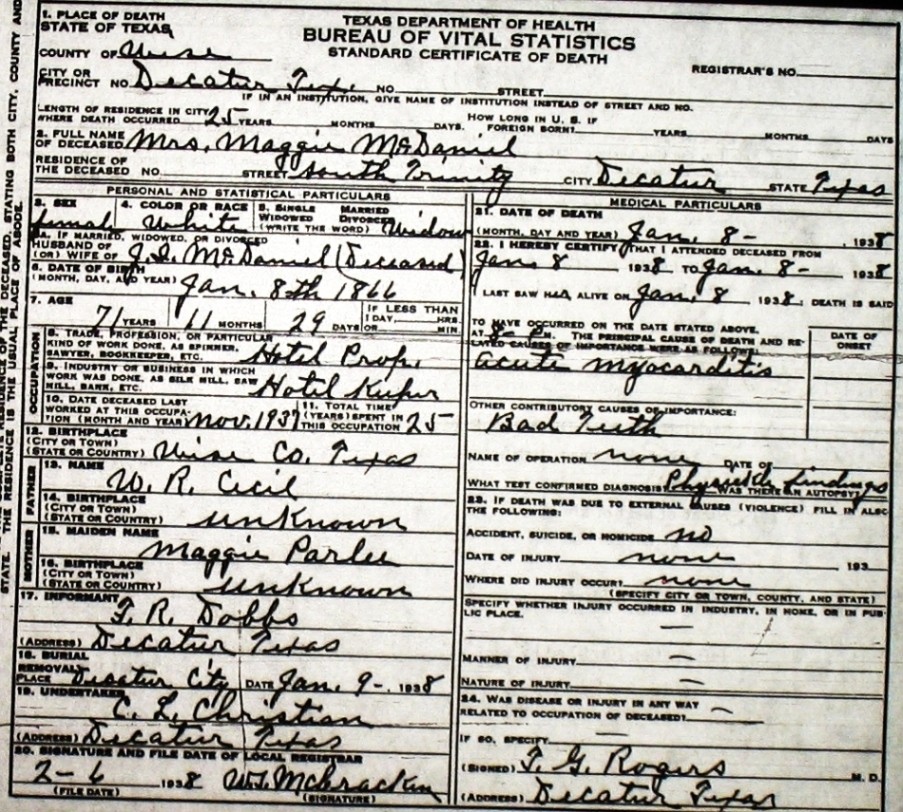 1. PLACE OF DEATH
STATE OF TEXAS
TEXAS DEPARTMENT OF HEALTH
BUREAU OF VITAL STATISTICS
STANDARD CERTIFICATE OF DEATH
COUNTY OF Wise
REGISTRAR'S NO.
CITY OR PRECINCT NO. Decatur Tex. NO. STREET
IF IN AN INSTITUTION, GIVE NAME OF INSTITUTION INSTEAD OF STREET AND NO.
LENGTH OF RESIDENCE IN CITY WHERE DEATH OCCURRED 25 YEARS MONTHS DAYS. HOW LONG IN U. S. IF FOREIGN BORN? YEARS MONTHS DAYS
2. FULL NAME OF DECEASED Mrs. Maggie McDaniel
RESIDENCE OF THE DECEASED NO. STREET South Trinity CITY Decatur STATE Texas
PERSONAL AND STATISTICAL PARTICULARS
3. SEX
Female
4. COLOR OR RACE
White
5. SINGLE MARRIED WIDOWED DIVORCED (WRITE THE WORD) Widow
5A. IF MARRIED, WIDOWED, OR DIVORCED
HUSBAND OF
(OR) WIFE OF J. I. McDaniel (Deceased)
6. DATE OF BIRTH
(MONTH, DAY, AND YEAR) Jan. 8th 1866
7. AGE
71 YEARS 11 MONTHS 29 DAYS
IF LESS THAN 1 DAY, HRS. OR MIN.
OCCUPATION
8. TRADE, PROFESSION, OR PARTICULAR
KIND OF WORK DONE, AS SPINNER,
SAWYER, BOOKKEEPER, ETC. Hotel Prop.
9. INDUSTRY OR BUSINESS IN WHICH
WORK WAS DONE, AS SILK MILL, SAW
MILL, BANK, ETC. Hotel Keeper
10. DATE DECEASED LAST
WORKED AT THIS OCCUPA-
TION (MONTH AND YEAR) Nov. 1937
11. TOTAL TIME
(YEARS) SPENT IN
THIS OCCUPATION 25
12. BIRTHPLACE
(CITY OR TOWN)
(STATE OR COUNTRY) Wise Co. Texas
FATHER
13. NAME
W. R. Cecil
14. BIRTHPLACE
(CITY OR TOWN)
(STATE OR COUNTRY) unknown
MOTHER
15. MAIDEN NAME
Maggie Parlee
16. BIRTHPLACE
(CITY OR TOWN)
(STATE OR COUNTRY) unknown
17. INFORMANT
F. R. Dobbs
(ADDRESS) Decatur Texas
18. BURIAL
REMOVAL
PLACE Decatur City DATE Jan. 9- 1938
19. UNDERTAKER
C. L. Christian
(ADDRESS) Decatur Texas
20. SIGNATURE AND FILE DATE OF LOCAL REGISTRAR
2-6 1938 McCrackin
(FILE DATE) (SIGNATURE)
MEDICAL PARTICULARS
21. DATE OF DEATH
(MONTH, DAY AND YEAR) Jan. 8- , 1938
22. I HEREBY CERTIFY THAT I ATTENDED DECEASED FROM
Jan. 8 1938 TO Jan. 8- 1938
I LAST SAW ALIVE ON Jan. 8 1938; DEATH IS SAID
TO HAVE OCCURRED ON THE DATE STATED ABOVE,
AT M. THE PRINCIPAL CAUSE OF DEATH AND RE-
LATED CAUSES OF IMPORTANCE WERE AS FOLLOWS:
DATE OF ONSET
acute myocarditis
OTHER CONTRIBUTORY CAUSES OF IMPORTANCE:
Bad Teeth
NAME OF OPERATION none DATE OF
WHAT TEST CONFIRMED DIAGNOSIS findings WAS THERE AN AUTOPSY?
23. IF DEATH WAS DUE TO EXTERNAL CAUSES (VIOLENCE) FILL IN ALSO
THE FOLLOWING:
ACCIDENT, SUICIDE, OR HOMICIDE no
DATE OF INJURY none 193
WHERE DID INJURY OCCUR? none
(SPECIFY CITY OR TOWN, COUNTY, AND STATE)
SPECIFY WHETHER INJURY OCCURRED IN INDUSTRY, IN HOME, OR IN PUB-
LIC PLACE. —
MANNER OF INJURY —
NATURE OF INJURY —
24. WAS DISEASE OR INJURY IN ANY WAY
RELATED TO OCCUPATION OF DECEASED? —
IF SO, SPECIFY —
(SIGNED) T. G. Rogers M. D.
(ADDRESS) Decatur Texas